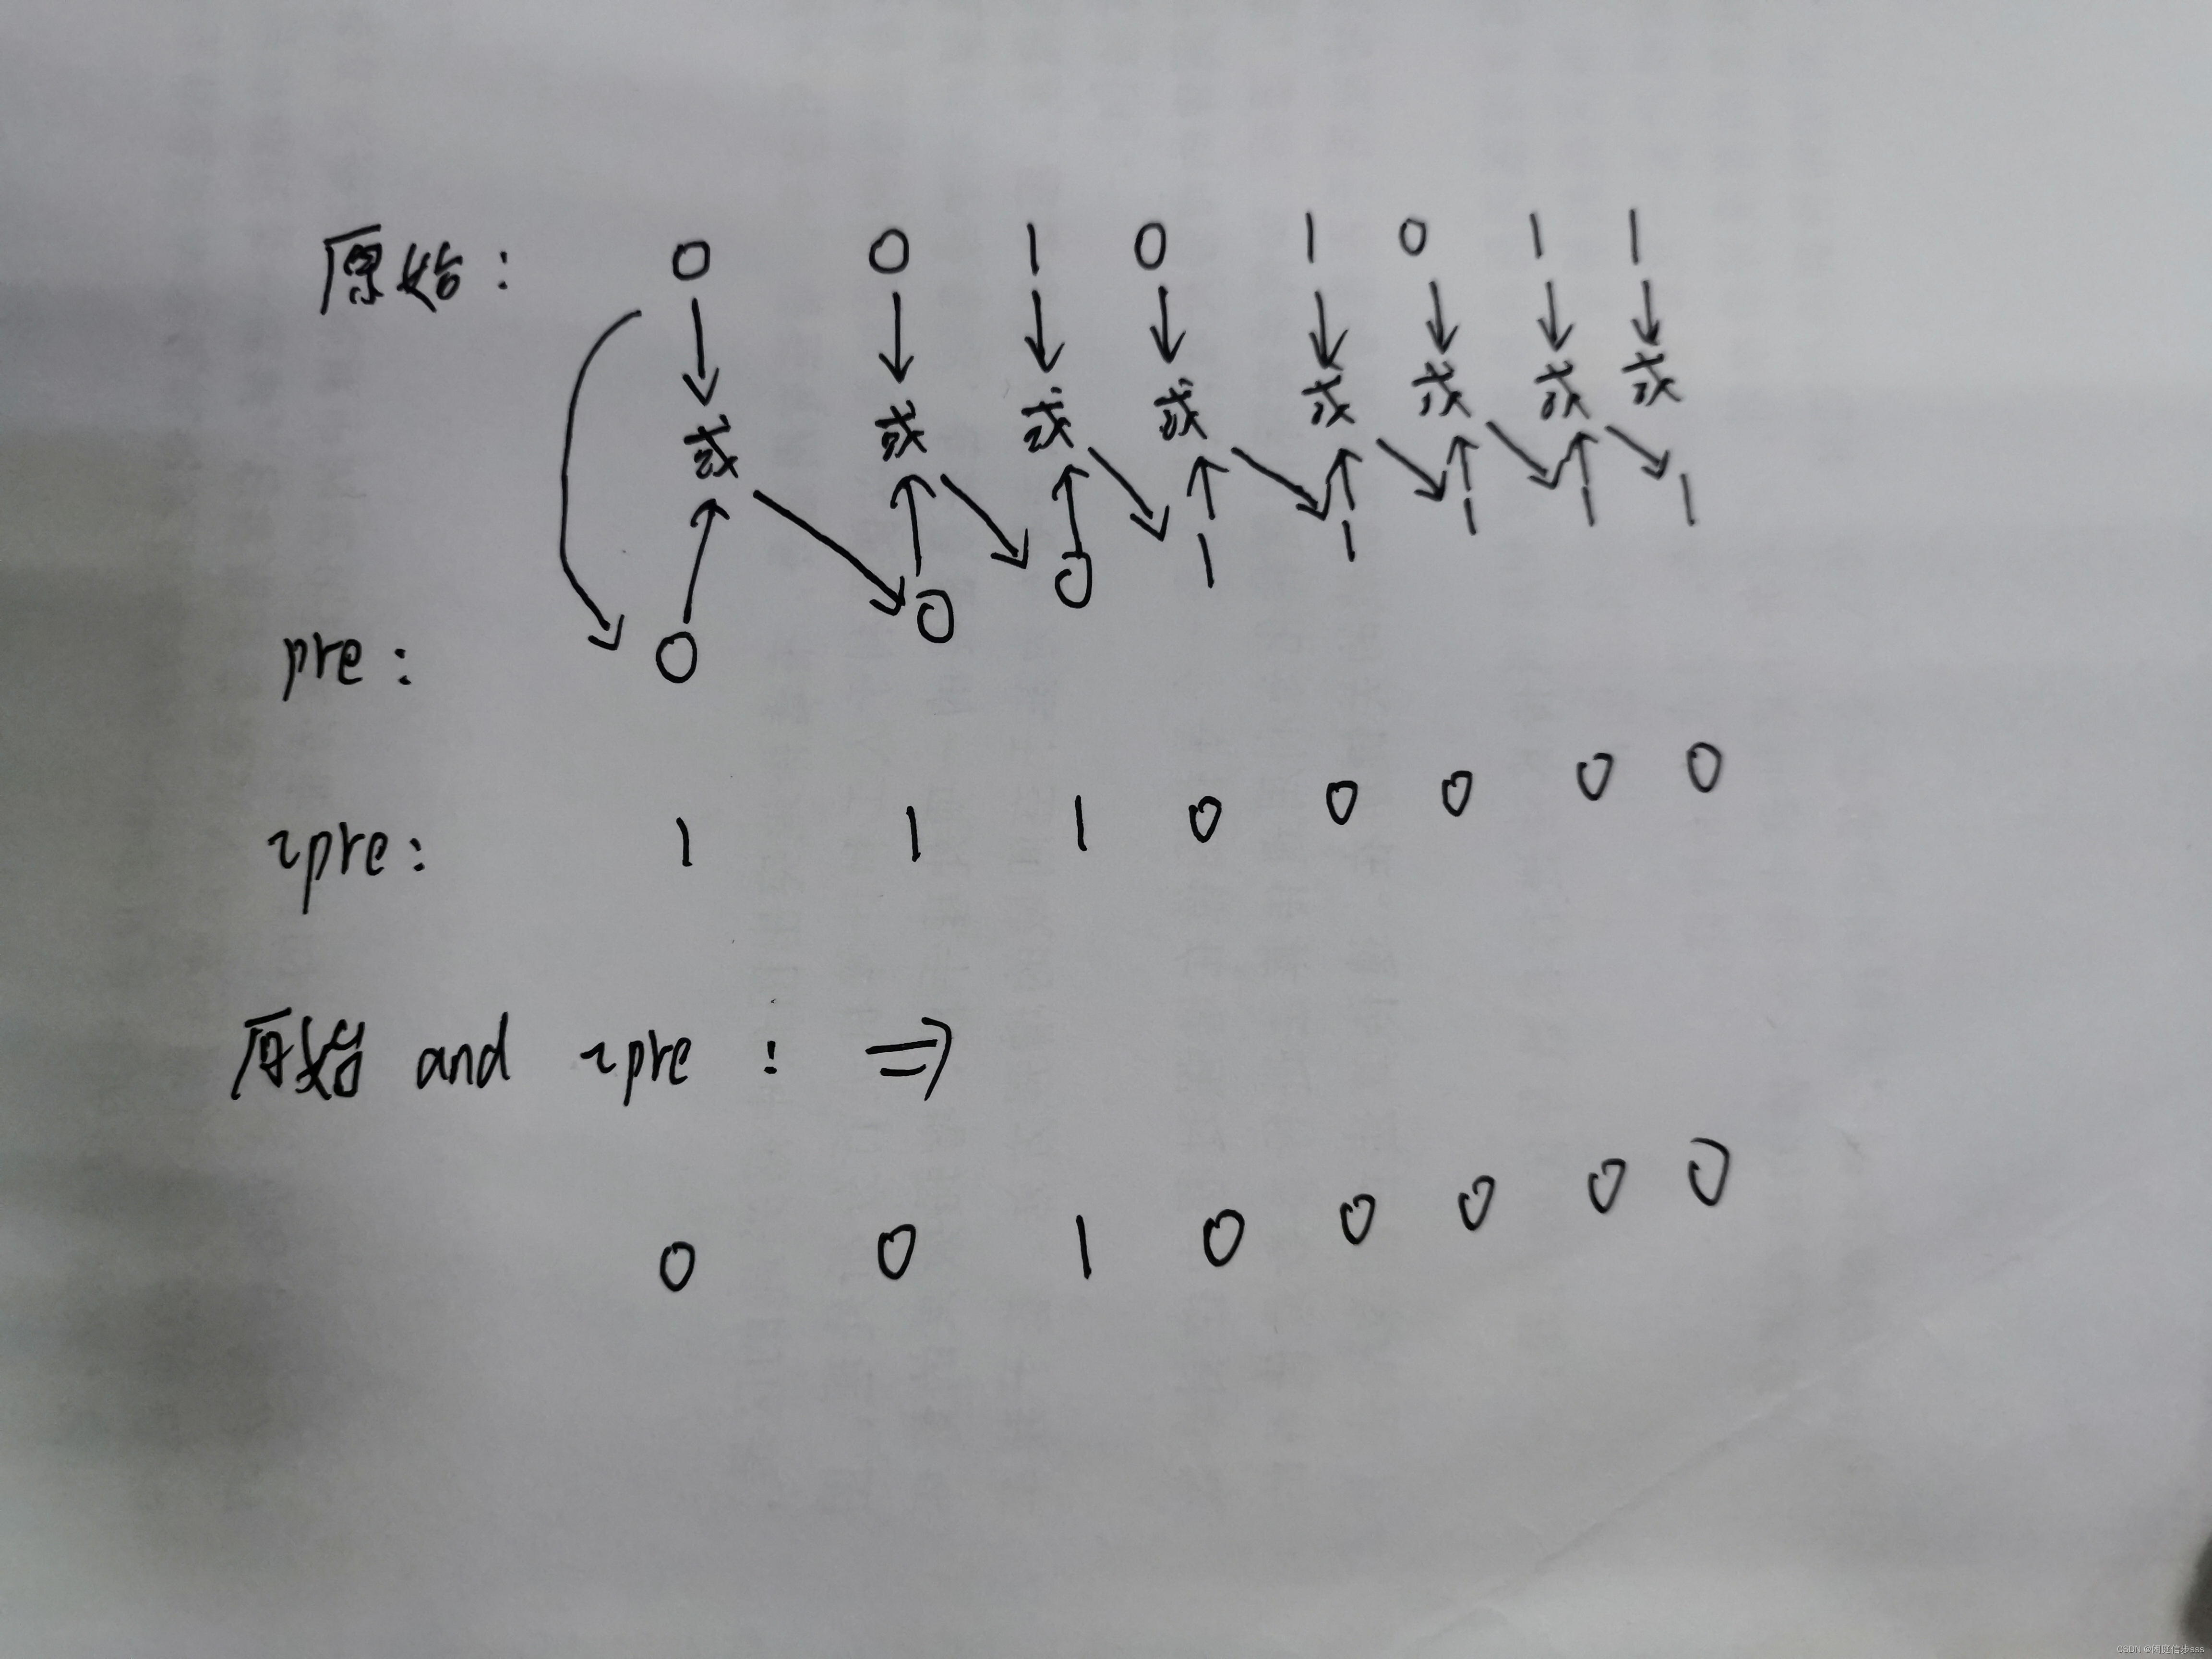 原始: 0 0 1 0 1 0 1 1
或 或 或 或 或 或 或 或
pre: 0 0 0 1 1 1 1 1
~pre: 1 1 1 0 0 0 0 0
原始 and ~pre : ⇒
0 0 1 0 0 0 0 0
CSDN @闲庭信步sss